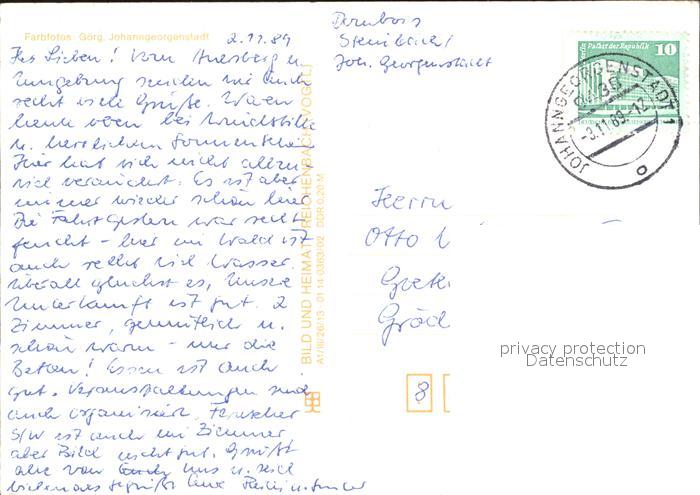 Farbfotos: Görg, Johanngeorgenstadt
2.11.89
Ihr Lieben! Vom Auersberg u.
Umgebung senden wir euch
recht viele Grüße. Waren
heute oben bei Windstille
u. herrlichem Sonnenschein
Hier hat sich nicht allzu
viel verändert. Es ist aber
immer wieder schön hier
Die Fahrt gestern war recht
feucht - hier im Wald ist
auch recht viel Wasser
überall gluckst es, Unsere
Unterkunft ist gut. 2
Zimmer, gemütlich u.
schön warm - nur die
Betten! Essen ist auch
gut. Veranstaltungen sind
auch organisiert, Fernseher
S/W ist auch im Zimmer
aber Bild nicht gut. Grüßt
alle von uns u. seid
vielmals gegrüßt
Steinbach/
Joh. Georgenstadt
BILD UND HEIMAT REICHENBACH (VOGTL)
A1/III/26/13 01 14 0363/02 DDR 0,20 M
Berlin Palast der Republik 10
JOHANNGEORGENSTADT 1
-3.11.89-12
Herrn
Otto
8
privacy protection
Datenschutz